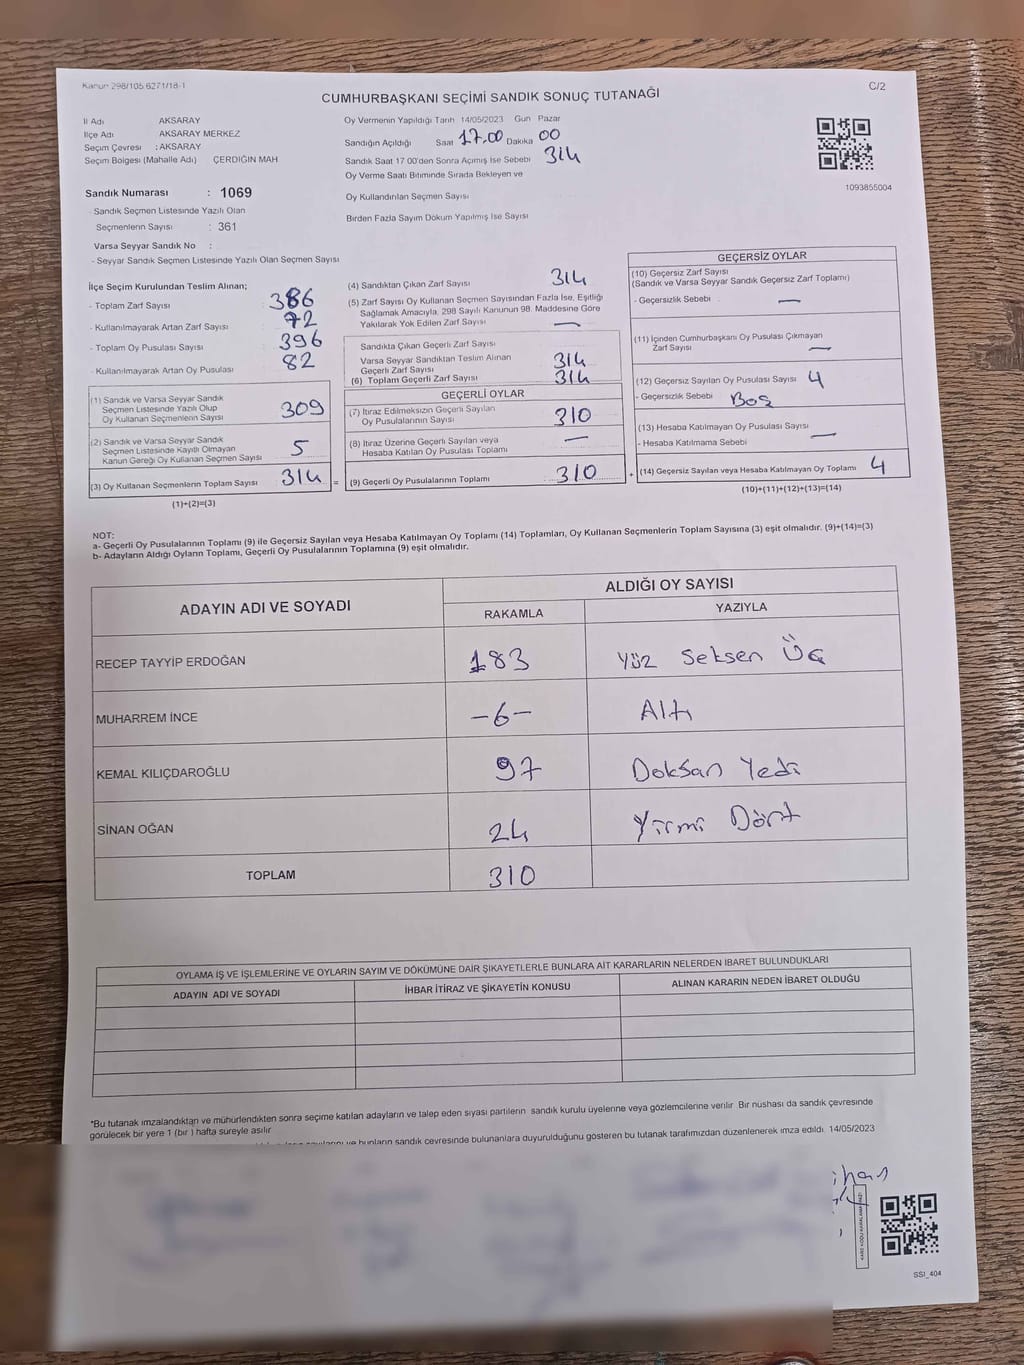 Kanun 298/105.6271/18-1
C/2
CUMHURBAŞKANI SEÇİMİ SANDIK SONUÇ TUTANAĞI
İl Adı AKSARAY
İlçe Adı AKSARAY MERKEZ
Seçim Çevresi : AKSARAY
Seçim Bölgesi (Mahalle Adı) ÇERDİĞİN MAH
Sandık Numarası : 1069
- Sandık Seçmen Listesinde Yazılı Olan
Seçmenlerin Sayısı : 361
Varsa Seyyar Sandık No :
- Seyyar Sandık Seçmen Listesinde Yazılı Olan Seçmen Sayısı
Oy Vermenin Yapıldığı Tarih 14/05/2023 Gün Pazar
Sandığın Açıldığı Saat 17.00 Dakika 00
Sandık Saat 17 00'den Sonra Açımış İse Sebebi 314
Oy Verme Saati Bitiminde Sırada Bekleyen ve
Oy Kullandırılan Seçmen Sayısı
Birden Fazla Sayım Döküm Yapılmış İse Sayısı
1093855004
İlçe Seçim Kurulundan Teslim Alınan;
- Toplam Zarf Sayısı 386
- Kullanılmayarak Artan Zarf Sayısı 72
- Toplam Oy Pusulası Sayısı 396
- Kullanılmayarak Artan Oy Pusulası 82
(1) Sandık ve Varsa Seyyar Sandık
Seçmen Listesinde Yazılı Olup
Oy Kullanan Seçmenlerin Sayısı 309
(2) Sandık ve Varsa Seyyar Sandık
Seçmen Listesinde Kayıtlı Olmayan
Kanun Gereği Oy Kullanan Seçmen Sayısı 5
(3) Oy Kullanan Seçmenlerin Toplam Sayısı 314 =
(1)+(2)=(3)
(4) Sandıktan Çıkan Zarf Sayısı 314
(5) Zarf Sayısı Oy Kullanan Seçmen Sayısından Fazla İse, Eşitliği
Sağlamak Amacıyla, 298 Sayılı Kanunun 98. Maddesine Göre
Yakılarak Yok Edilen Zarf Sayısı —
Sandıkta Çıkan Geçerli Zarf Sayısı
Varsa Seyyar Sandıktan Teslim Alınan
Geçerli Zarf Sayısı 314
(6) Toplam Geçerli Zarf Sayısı 314
GEÇERLİ OYLAR
(7) İtiraz Edilmeksizin Geçerli Sayılan
Oy Pusulalarının Sayısı 310
(8) İtiraz Üzerine Geçerli Sayılan veya
Hesaba Katılan Oy Pusulası Toplamı —
(9) Geçerli Oy Pusulalarının Toplamı 310 +
GEÇERSİZ OYLAR
(10) Geçersiz Zarf Sayısı
(Sandık ve Varsa Seyyar Sandık Geçersiz Zarf Toplamı)
- Geçersizlik Sebebi —
(11) İçinden Cumhurbaşkanı Oy Pusulası Çıkmayan
Zarf Sayısı —
(12) Geçersiz Sayılan Oy Pusulası Sayısı 4
- Geçersizlik Sebebi Boş
(13) Hesaba Katılmayan Oy Pusulası Sayısı —
- Hesaba Katılmama Sebebi
(14) Geçersiz Sayılan veya Hesaba Katılmayan Oy Toplamı 4
(10)+(11)+(12)+(13)=(14)
NOT:
a- Geçerli Oy Pusulalarının Toplamı (9) ile Geçersiz Sayılan veya Hesaba Katılmayan Oy Toplamı (14) Toplamları, Oy Kullanan Seçmenlerin Toplam Sayısına (3) eşit olmalıdır. (9)+(14)=(3)
b- Adayların Aldığı Oyların Toplamı, Geçerli Oy Pusulalarının Toplamına (9) eşit olmalıdır.
ADAYIN ADI VE SOYADI ALDIĞI OY SAYISI
RAKAMLA YAZIYLA
RECEP TAYYİP ERDOĞAN 183 Yüz Seksen Üç
MUHARREM İNCE -6- Altı
KEMAL KILIÇDAROĞLU 97 Doksan Yedi
SİNAN OĞAN 24 Yirmi Dört
TOPLAM 310
OYLAMA İŞ VE İŞLEMLERİNE VE OYLARIN SAYIM VE DÖKÜMÜNE DAİR ŞİKAYETLERLE BUNLARA AİT KARARLARIN NELERDEN İBARET BULUNDUKLARI
ADAYIN ADI VE SOYADI İHBAR İTİRAZ VE ŞİKAYETİN KONUSU ALINAN KARARIN NEDEN İBARET OLDUĞU
*Bu tutanak imzalandıktan ve mühürlendikten sonra seçime katılan adayların ve talep eden siyasi partilerin sandık kurulu üyelerine veya gözlemcilerine verilir Bir nüshası da sandık çevresinde
görülecek bir yere 1 (bir ) hafta süreyle asılır
ve bunların sandık çevresinde bulunanlara duyurulduğunu gösteren bu tutanak tarafımızdan düzenlenerek imza edildi. 14/05/2023
SSI_404